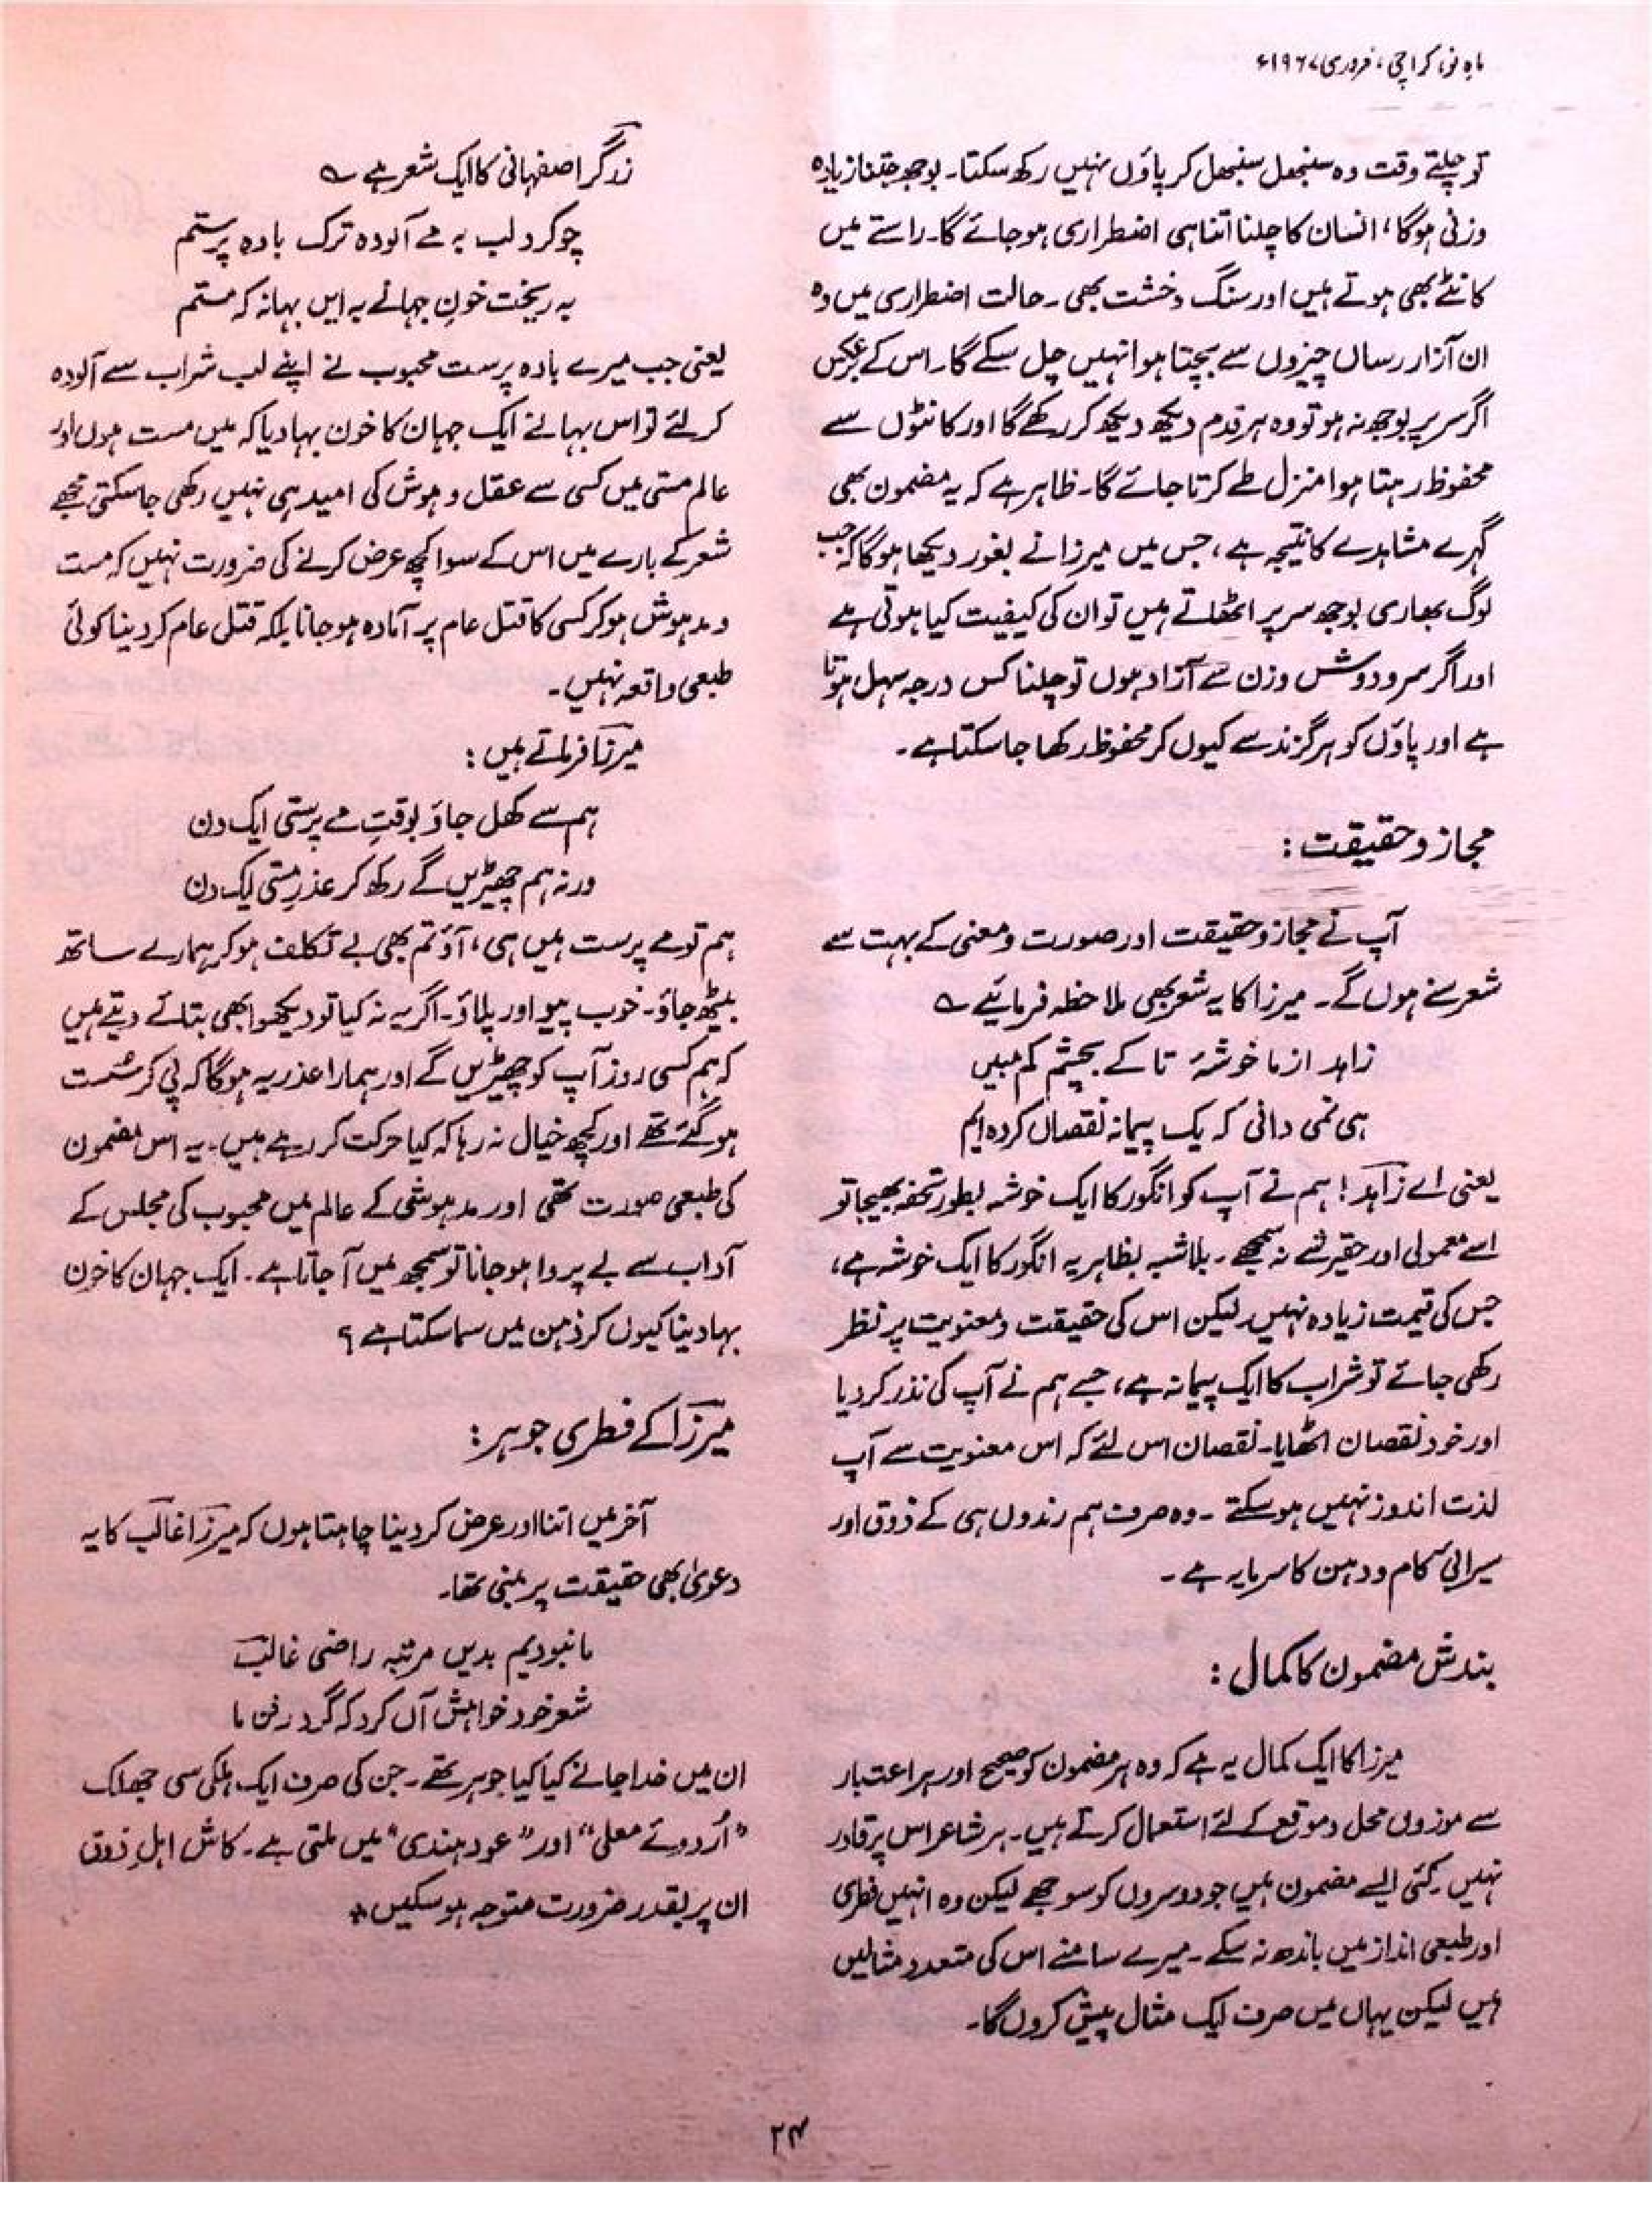 ماہِ نو، کراچی، فروری ۱۹۶۷ء
تو چلتے وقت وہ سنبھل سنبھل کر پاؤں نہیں رکھ سکتا۔ بوجھ جتنا زیادہ
وزنی ہوگا، انسان کا چلنا اتنا ہی اضطراری ہوجائے گا۔ راستے میں
کانٹے بھی ہوتے ہیں اور سنگ و خشت بھی۔ حالت اضطراری میں وہ
ان آزار رساں چیزوں سے بچتا ہوا نہیں چل سکے گا۔ اس کے برعکس
اگر سر پر بوجھ نہ ہو تو وہ ہر قدم دیکھ دیکھ کر رکھے گا اور کانٹوں سے
محفوظ رہتا ہوا منزل طے کرتا جائے گا۔ ظاہر ہے کہ یہ مضمون بھی
گہرے مشاہدے کا نتیجہ ہے، جس میں میرزا نے بغور دیکھا ہوگا کہ جب
لوگ بھاری بوجھ سر پر اٹھاتے ہیں تو ان کی کیفیت کیا ہوتی ہے
اور اگر سر و دوش وزن سے آزاد ہوں تو چلنا کس درجہ سہل ہوتا
ہے اور پاؤں کو ہر گزند سے کیوں کر محفوظ رکھا جاسکتا ہے۔
مجاز و حقیقت:
آپ نے مجاز و حقیقت اور صورت و معنی کے بہت سے
شعر سنے ہوں گے۔ میرزا کا یہ شعر بھی ملاحظہ فرمائیے ؎
زاہد از ما خوشۂ تا کے بچشم کم مبیں
ہی نمی دانی کہ یک پیمانہ نقصاں کردہ ایم
یعنی اے زاہد! ہم نے آپ کو انگور کا ایک خوشہ بطور تحفہ بھیجا تو
اسے معمولی اور حقیر شے نہ سمجھے۔ بلاشبہ بظاہر یہ انگور کا ایک خوشہ ہے،
جس کی قیمت زیادہ نہیں لیکن اس کی حقیقت و معنویت پر نظر
رکھی جائے تو شراب کا ایک پیمانہ ہے، جسے ہم نے آپ کی نذر کردیا
اور خود نقصان اٹھایا۔ نقصان اس لئے کہ اس معنویت سے آپ
لذت اندوز نہیں ہوسکتے۔ وہ صرف ہم رندوں ہی کے ذوق اور
سیرابیٔ کام و دہن کا سرمایہ ہے۔
بندش مضمون کا کمال:
میرزا کا ایک کمال یہ ہے کہ وہ ہر مضمون کو صحیح اور ہر اعتبار
سے موزوں محل و موقع کے لئے استعمال کرتے ہیں۔ ہر شاعر اس پر قادر
نہیں۔ کئی ایسے مضمون ہیں جو دوسروں کو سوجھے لیکن وہ انہیں فطری
اور طبعی انداز میں باندھ نہ سکے۔ میرے سامنے اس کی متعدد مثالیں
ہیں لیکن یہاں میں صرف ایک مثال پیش کروں گا۔
زرگر اصفہانی کا ایک شعر ہے ؎
چو کرد لب بہ مے آلودہ ترک بادہ پرستم
بہ ریخت خونِ جہانے بہ ایں بہانہ کہ مستم
یعنی جب میرے بادہ پرست محبوب نے اپنے لب شراب سے آلودہ
کرلئے تو اس بہانے ایک جہان کا خون بہا دیا کہ میں مست ہوں اور
عالم مستی میں کسی سے عقل و ہوش کی امید ہی نہیں رکھی جاسکتی مجھے
شعر کے بارے میں اس کے سوا کچھ عرض کرنے کی ضرورت نہیں کہ مست
و مدہوش ہوکر کسی کا قتل عام پر آمادہ ہوجانا بلکہ قتل عام کردینا کوئی
طبعی واقعہ نہیں۔
میرزا فرماتے ہیں:
ہم سے کھل جاؤ بوقتِ مے پرستی ایک دن
ورنہ ہم چھیڑیں گے رکھ کر عذرِ مستی ایک دن
ہم تو مے پرست ہیں ہی، آؤ تم بھی بے تکلف ہوکر ہمارے ساتھ
بیٹھ جاؤ۔ خوب پیو اور پلاؤ۔ اگر یہ نہ کیا تو دیکھو ابھی بتائے دیتے ہیں
کہ ہم کسی روز آپ کو چھیڑیں گے اور ہمارا عذر یہ ہوگا کہ پی کر مست
ہوگئے تھے اور کچھ خیال نہ رہا کہ کیا حرکت کر رہے ہیں۔ یہ اس مضمون
کی طبعی صورت تھی اور مدہوشی کے عالم میں محبوب کی مجلس کے
آداب سے بے پروا ہوجانا تو سمجھ میں آجاتا ہے۔ ایک جہان کا خون
بہا دینا کیوں کر ذہن میں سما سکتا ہے؟
میرزا کے فطری جوہر:
آخر میں اتنا اور عرض کردینا چاہتا ہوں کہ میرزا غالب کا یہ
دعویٰ بھی حقیقت پر مبنی تھا۔
ما نبودیم بدیں مرتبہ راضی غالب
شعر خود خواہش آں کرد کہ گردد فن ما
ان میں خدا جانے کیا کیا جوہر تھے۔ جن کی صرف ایک ہلکی سی جھلک
"اُردوئے معلی" اور "عود ہندی" میں ملتی ہے۔ کاش اہلِ ذوق
ان پر بقدر ضرورت متوجہ ہوسکیں*
۲۴